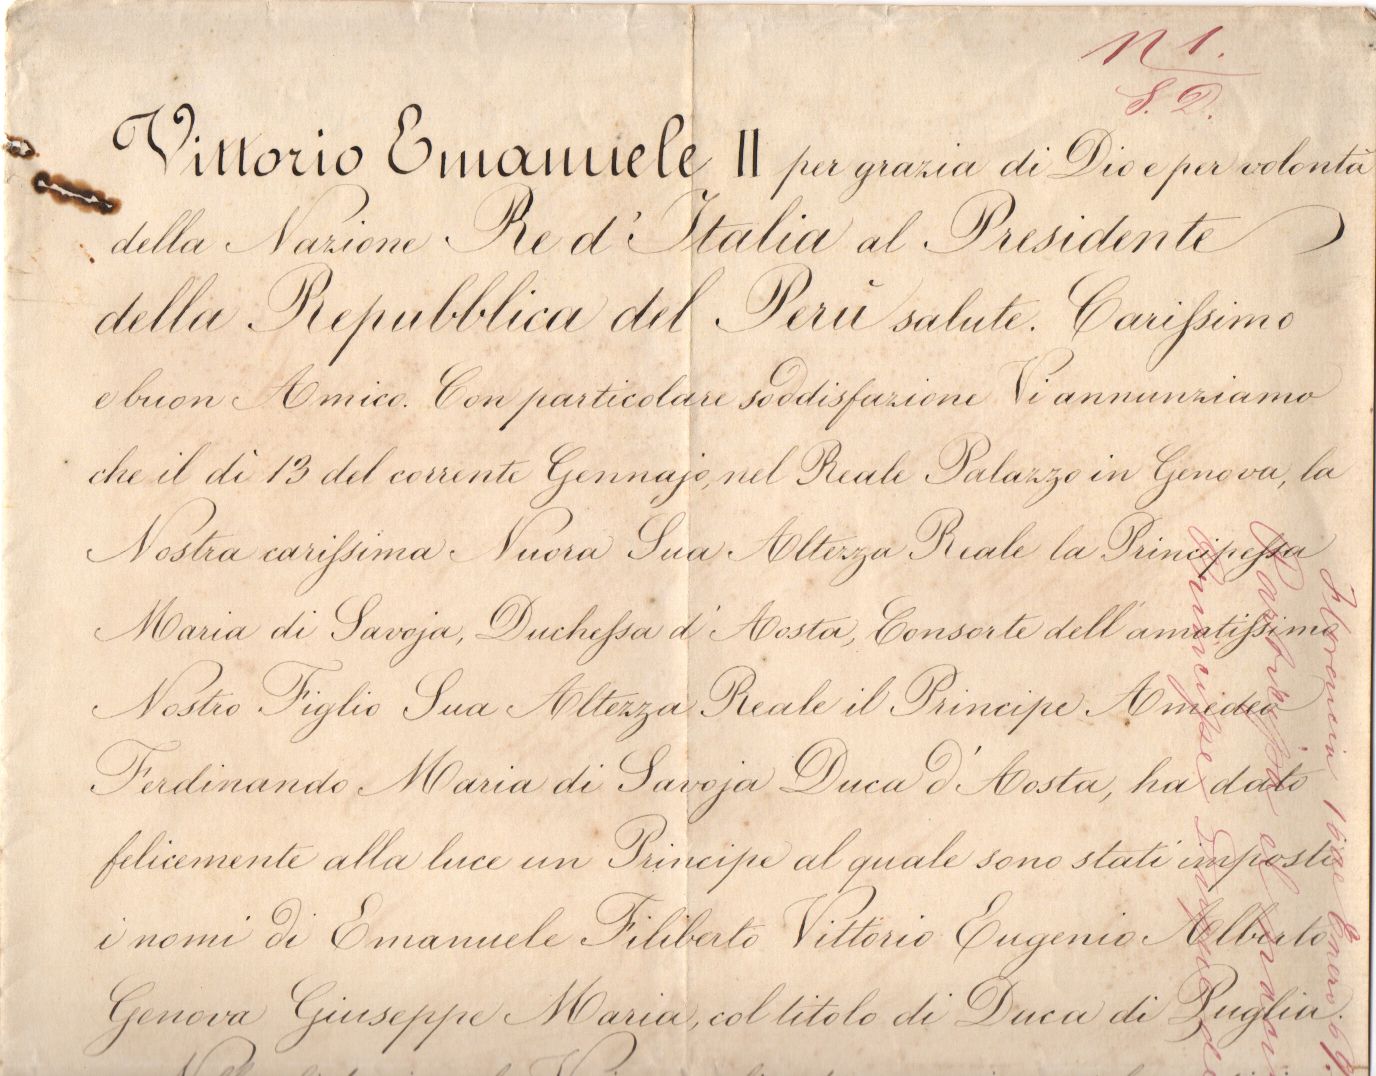 N 1.
S. D.
Vittorio Emanuele II per grazia di Dio e per volontà
della Nazione Re d'Italia al Presidente
della Repubblica del Perù salute. Carissimo
e buon Amico. Con particolare soddisfazione Vi annunziamo
che il dì 13 del corrente Gennajo, nel Reale Palazzo in Genova, la
Nostra carissima Nuora Sua Altezza Reale la Principessa
Maria di Savoja, Duchessa d'Aosta, Consorte dell'amatissimo
Nostro Figlio Sua Altezza Reale il Principe Amedeo
Ferdinando Maria di Savoja Duca d'Aosta, ha dato
felicemente alla luce un Principe al quale sono stati imposti
i nomi di Emanuele Filiberto Vittorio Eugenio Alberto
Genova Giuseppe Maria, col titolo di Duca di Puglia.
Florencia 16 de Enero 69.
Participa el
Principe